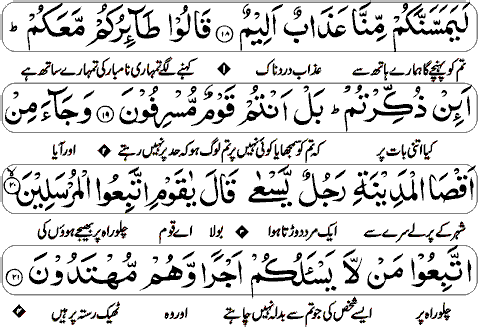 لَيَمَسَّنَّكُمْ مِّنَّا عَذَابٌ اَلِيْمٌ ﴿۱۸﴾ قَالُوْا طَآئِرُكُمْ مَّعَكُمْ ؕ
تم کو پہنچے گا ہمارے ہاتھ سے عذاب دردناک ۱ کہنے لگے تمہاری نامبارکی تمہارے ساتھ ہے
اَئِنْ ذُكِّرْتُمْ ؕ بَلْ اَنْتُمْ قَوْمٌ مُّسْرِفُوْنَ ﴿۱۹﴾ وَجَآءَ مِنْ
کیا اتنی بات پر کہ تم کو سمجھایا کوئی نہیں پر تم لوگ ہو کہ حد پر نہیں رہتے ۲ اور آیا
اَقْصَا الْمَدِيْنَةِ رَجُلٌ يَّسْعٰى قَالَ يٰقَوْمِ اتَّبِعُوا الْمُرْسَلِيْنَ ﴿۲۰﴾
شہر کے پرلے سرے سے ایک مرد دوڑتا ہوا ۳ بولا اے قوم چلو راہ پر بھیجے ہوؤں کی
اتَّبِعُوْا مَنْ لَّا يَسْـَٔلُكُمْ اَجْرًا وَّهُمْ مُّهْتَدُوْنَ ﴿۲۱﴾
چلو راہ پر ایسے شخص کی جو تم سے بدلہ نہیں چاہتے اور وہ ٹھیک رستہ پر ہیں ۴